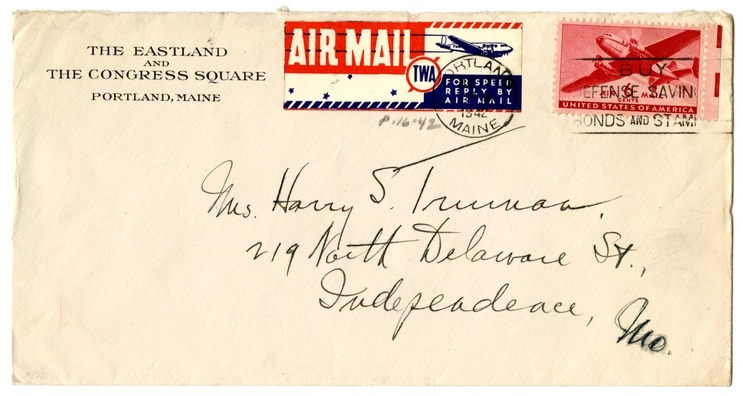 THE EASTLAND
AND
THE CONGRESS SQUARE
PORTLAND, MAINE
AIR MAIL
TWA
FOR SPEED
REPLY BY
AIR MAIL
PORTLAND
1942
MAINE
8-16-42
BUY
DEFENSE SAVIN
BONDS AND STAM
AIR 6 MAIL
CENTS
UNITED STATES OF AMERICA
Mrs. Harry S. Truman,
219 North Delaware St.,
Independence, Mo.